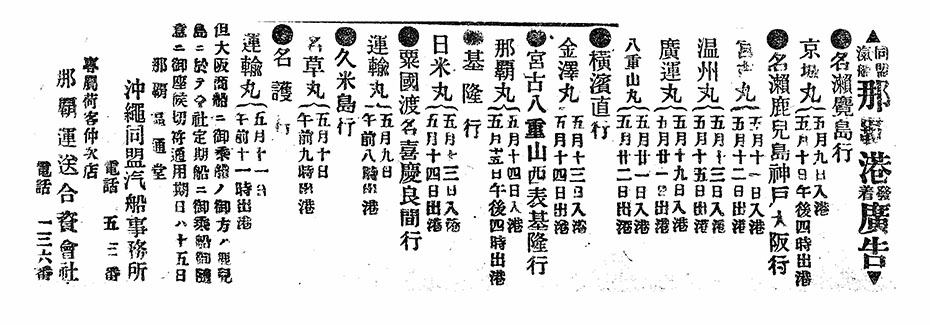 同盟
那覇港發着廣告
名瀬鹿島行
京城丸 五月九日入港
五月十日午後四時出港
名瀬鹿兒島神戸大阪行
五月十一日入港
五月十二日出港
温州丸 五月十三日入港
五月十五日出港
廣運丸 五月十九日入港
八重山丸 五月廿一日入港
五月廿二日出港
横濱直行
金澤丸 五月十三日入港
五月十四日出港
宮古八重山西表基隆行
那覇丸 五月十四日入港
五月十五日午後四時出港
基隆行
日米丸 五月十三日入港
五月十四日出港
粟國渡名喜慶良間行
運輸丸 五月九日
午前八時出港
久米島行
草丸 五月十日
午前九時出港
名護行
運輸丸 五月十一日
午前十一時出港
但大阪商船ニ御乘船ノ御方ハ鹿兒
島ニ於テ本社定期船ニ御乘船御隨
意ニ御座候切符通用期日八十五日
那覇通堂
沖繩同盟汽船事務所
電話 五三番
專屬荷客仲次店
那覇運送合資會社
電話 一三六番